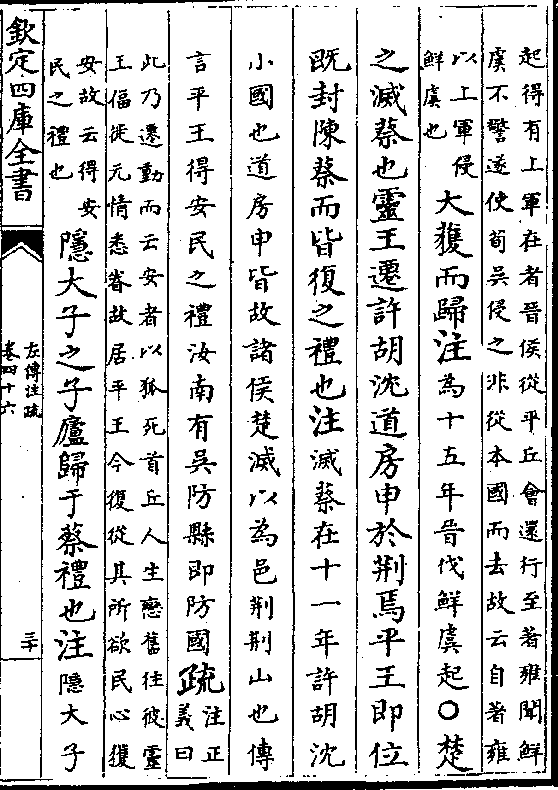 起得有上軍在者晉侯從平丘會還行至著雍聞鮮
虞不警遂使荀吳侵之非從本國而去故云自著雍
以上軍侵
鮮虞也
大獲而歸注為十五年晉伐鮮虞起○楚
之滅蔡也靈王遷許胡沈道房申於荆焉平王即位
既封陳蔡而皆復之禮也注滅蔡在十一年許胡沈
小國也道房申皆故諸侯楚滅以為邑荆荆山也傳
言平王得安民之禮汝南有吳防縣即防國疏注正
義曰
此乃遷動而云安者以狐死首丘人生戀舊往彼靈
王偪徙元情悉眷故居平王今復從其所欲民心獲
安故云得安
民之禮也
隱大子之子廬歸于蔡禮也注隱大子
欽定四庫全書
左傳注疏
卷四十六
三十